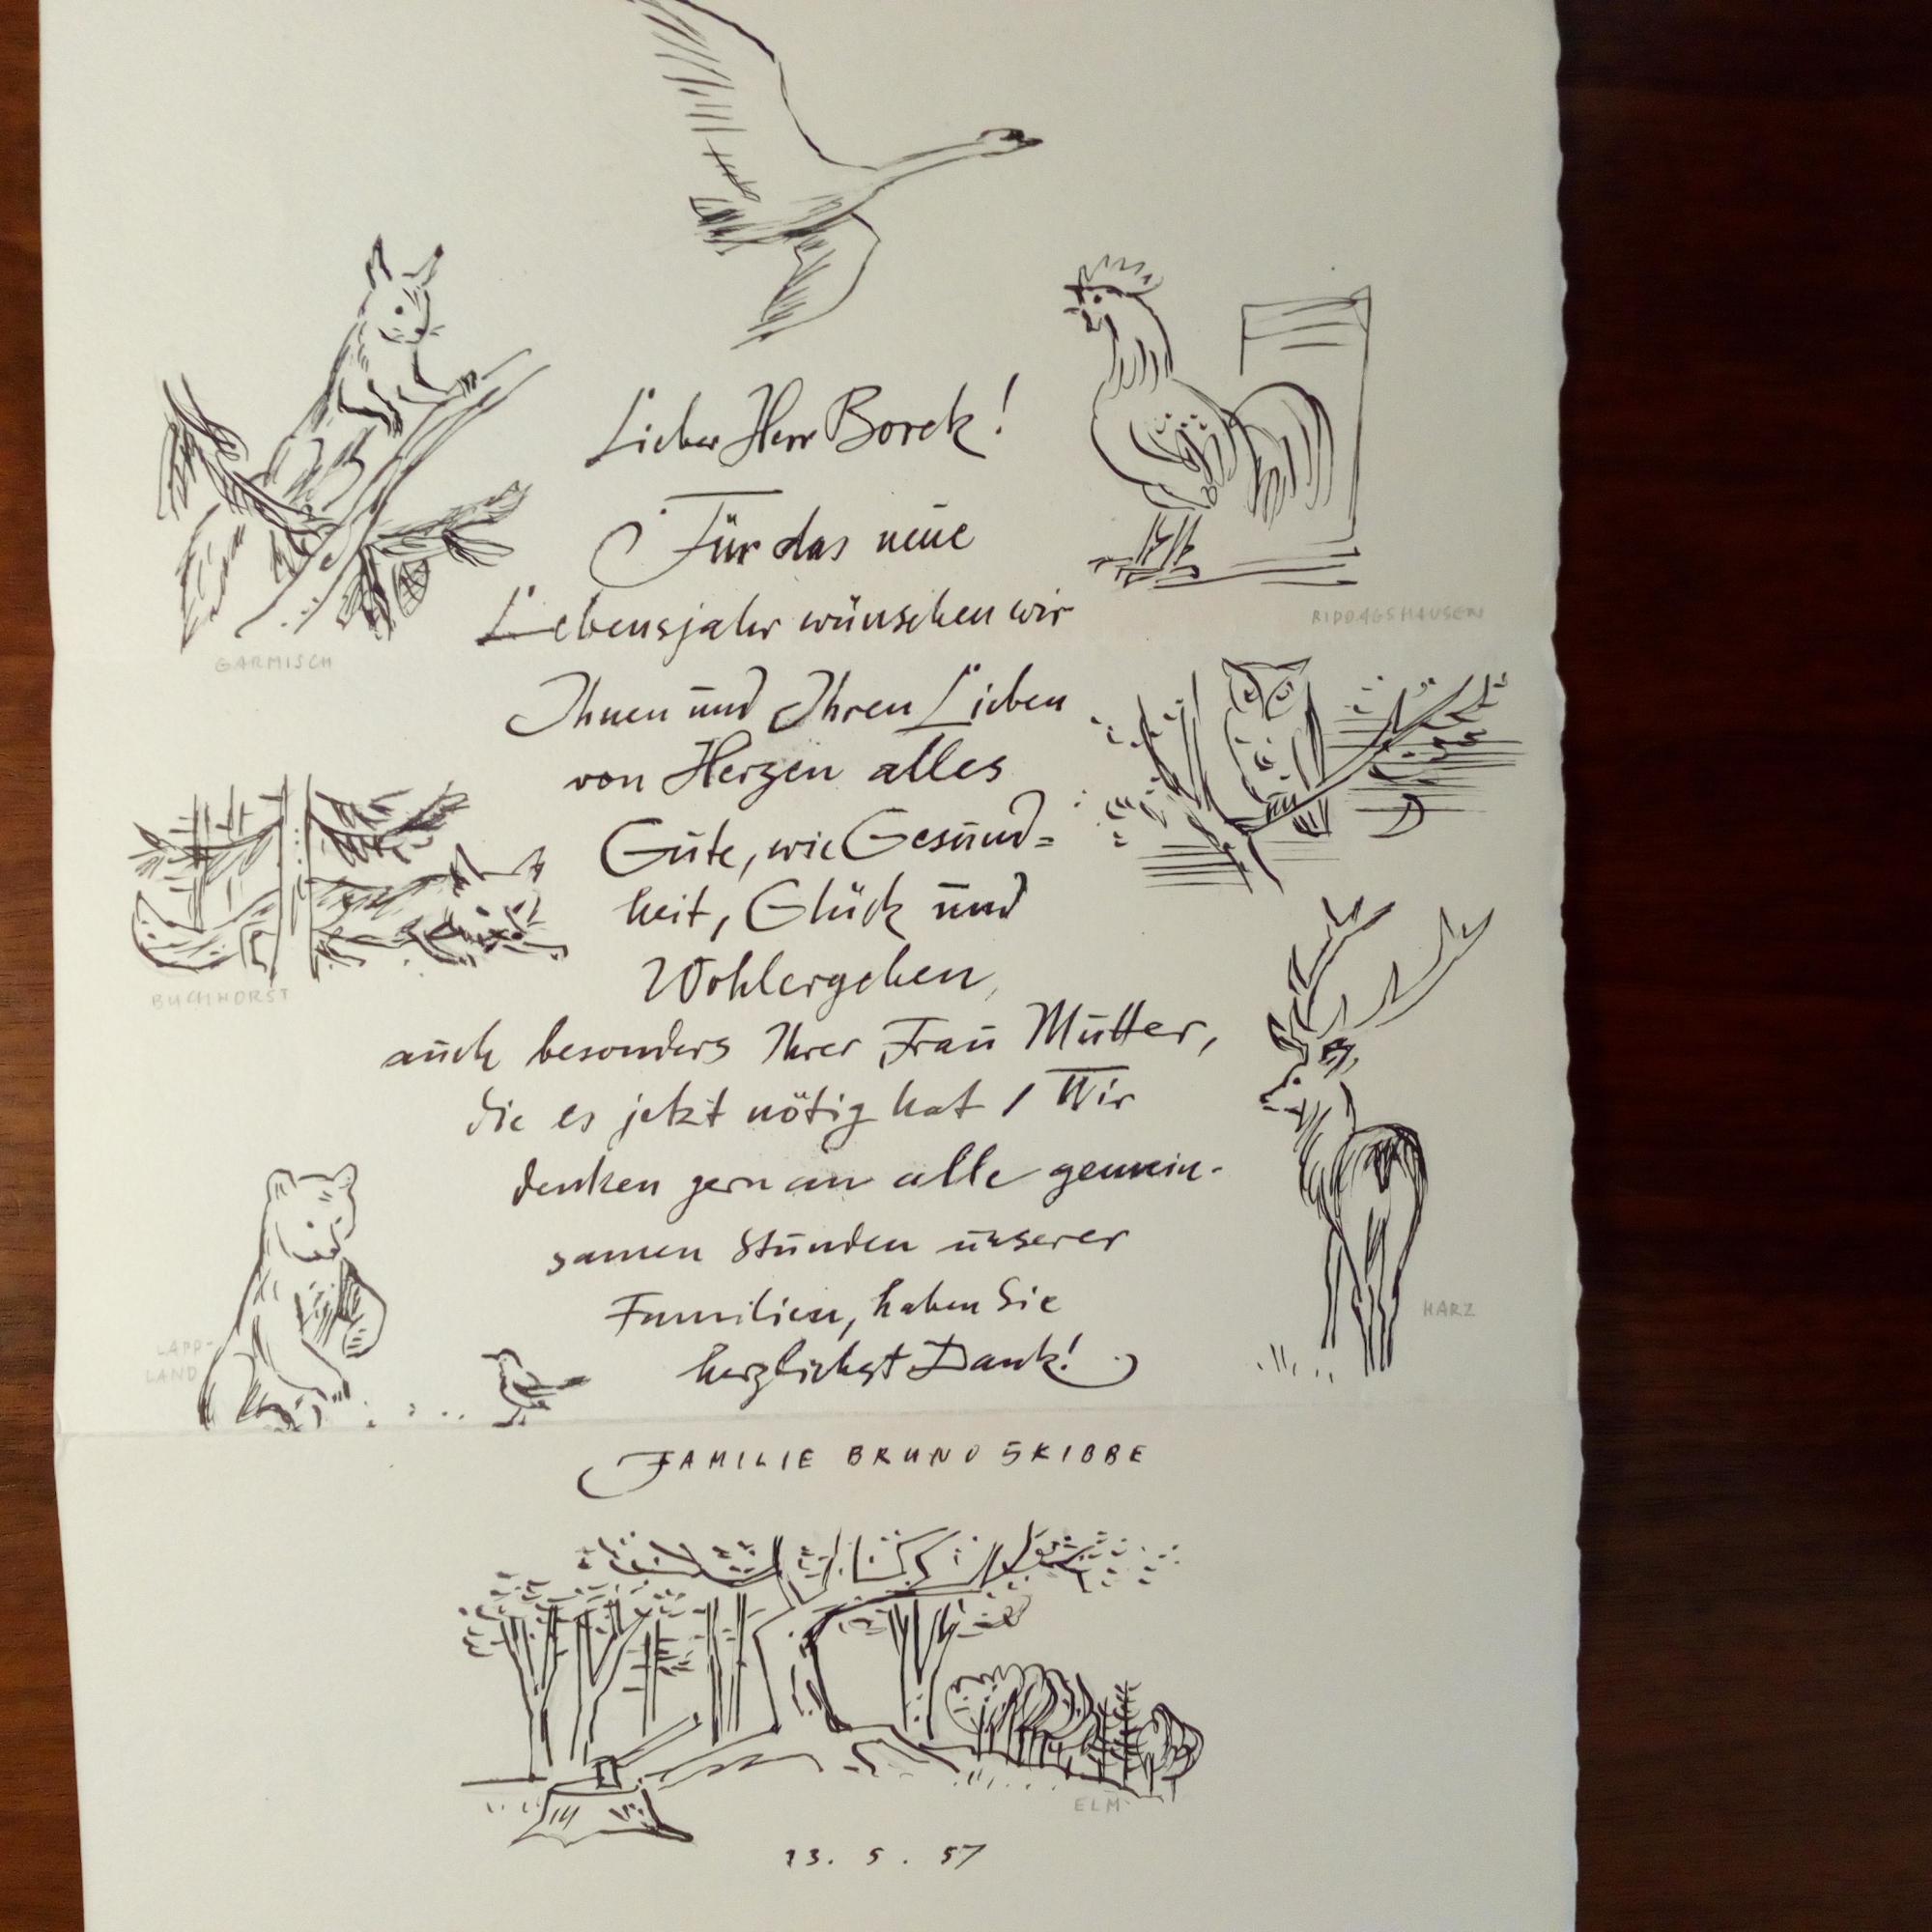 Lieber Herr Borek!
Für das neue
Lebensjahr wünschen wir
RIDDAGSHAUSEN
GARMISCH
Ihnen und Ihren Lieben
von Herzen alles
Gute, wie Gesund=
heit, Glück und
Wohlergehen,
BUCHHORST
auch besonders Ihrer Frau Mutter,
die es jetzt nötig hat / Wir
denken gern an alle gemein-
samen Stunden unserer
Familien, haben Sie
HARZ
LAPP-
LAND
herzlichst Dank!
FAMILIE BRUNO SKIBBE
ELM
13. 5. 57